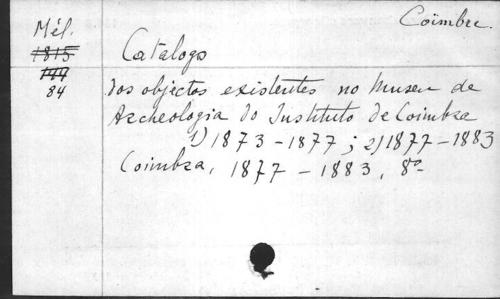 Coïmbre.
Mél.
1815
144
84
Catalogo
dos objectos existentes no Museu de
Archeologia do Instituto de Coimbra
1) 1873-1877; 2) 1877-1883
Coimbra, 1877-1883, 8º